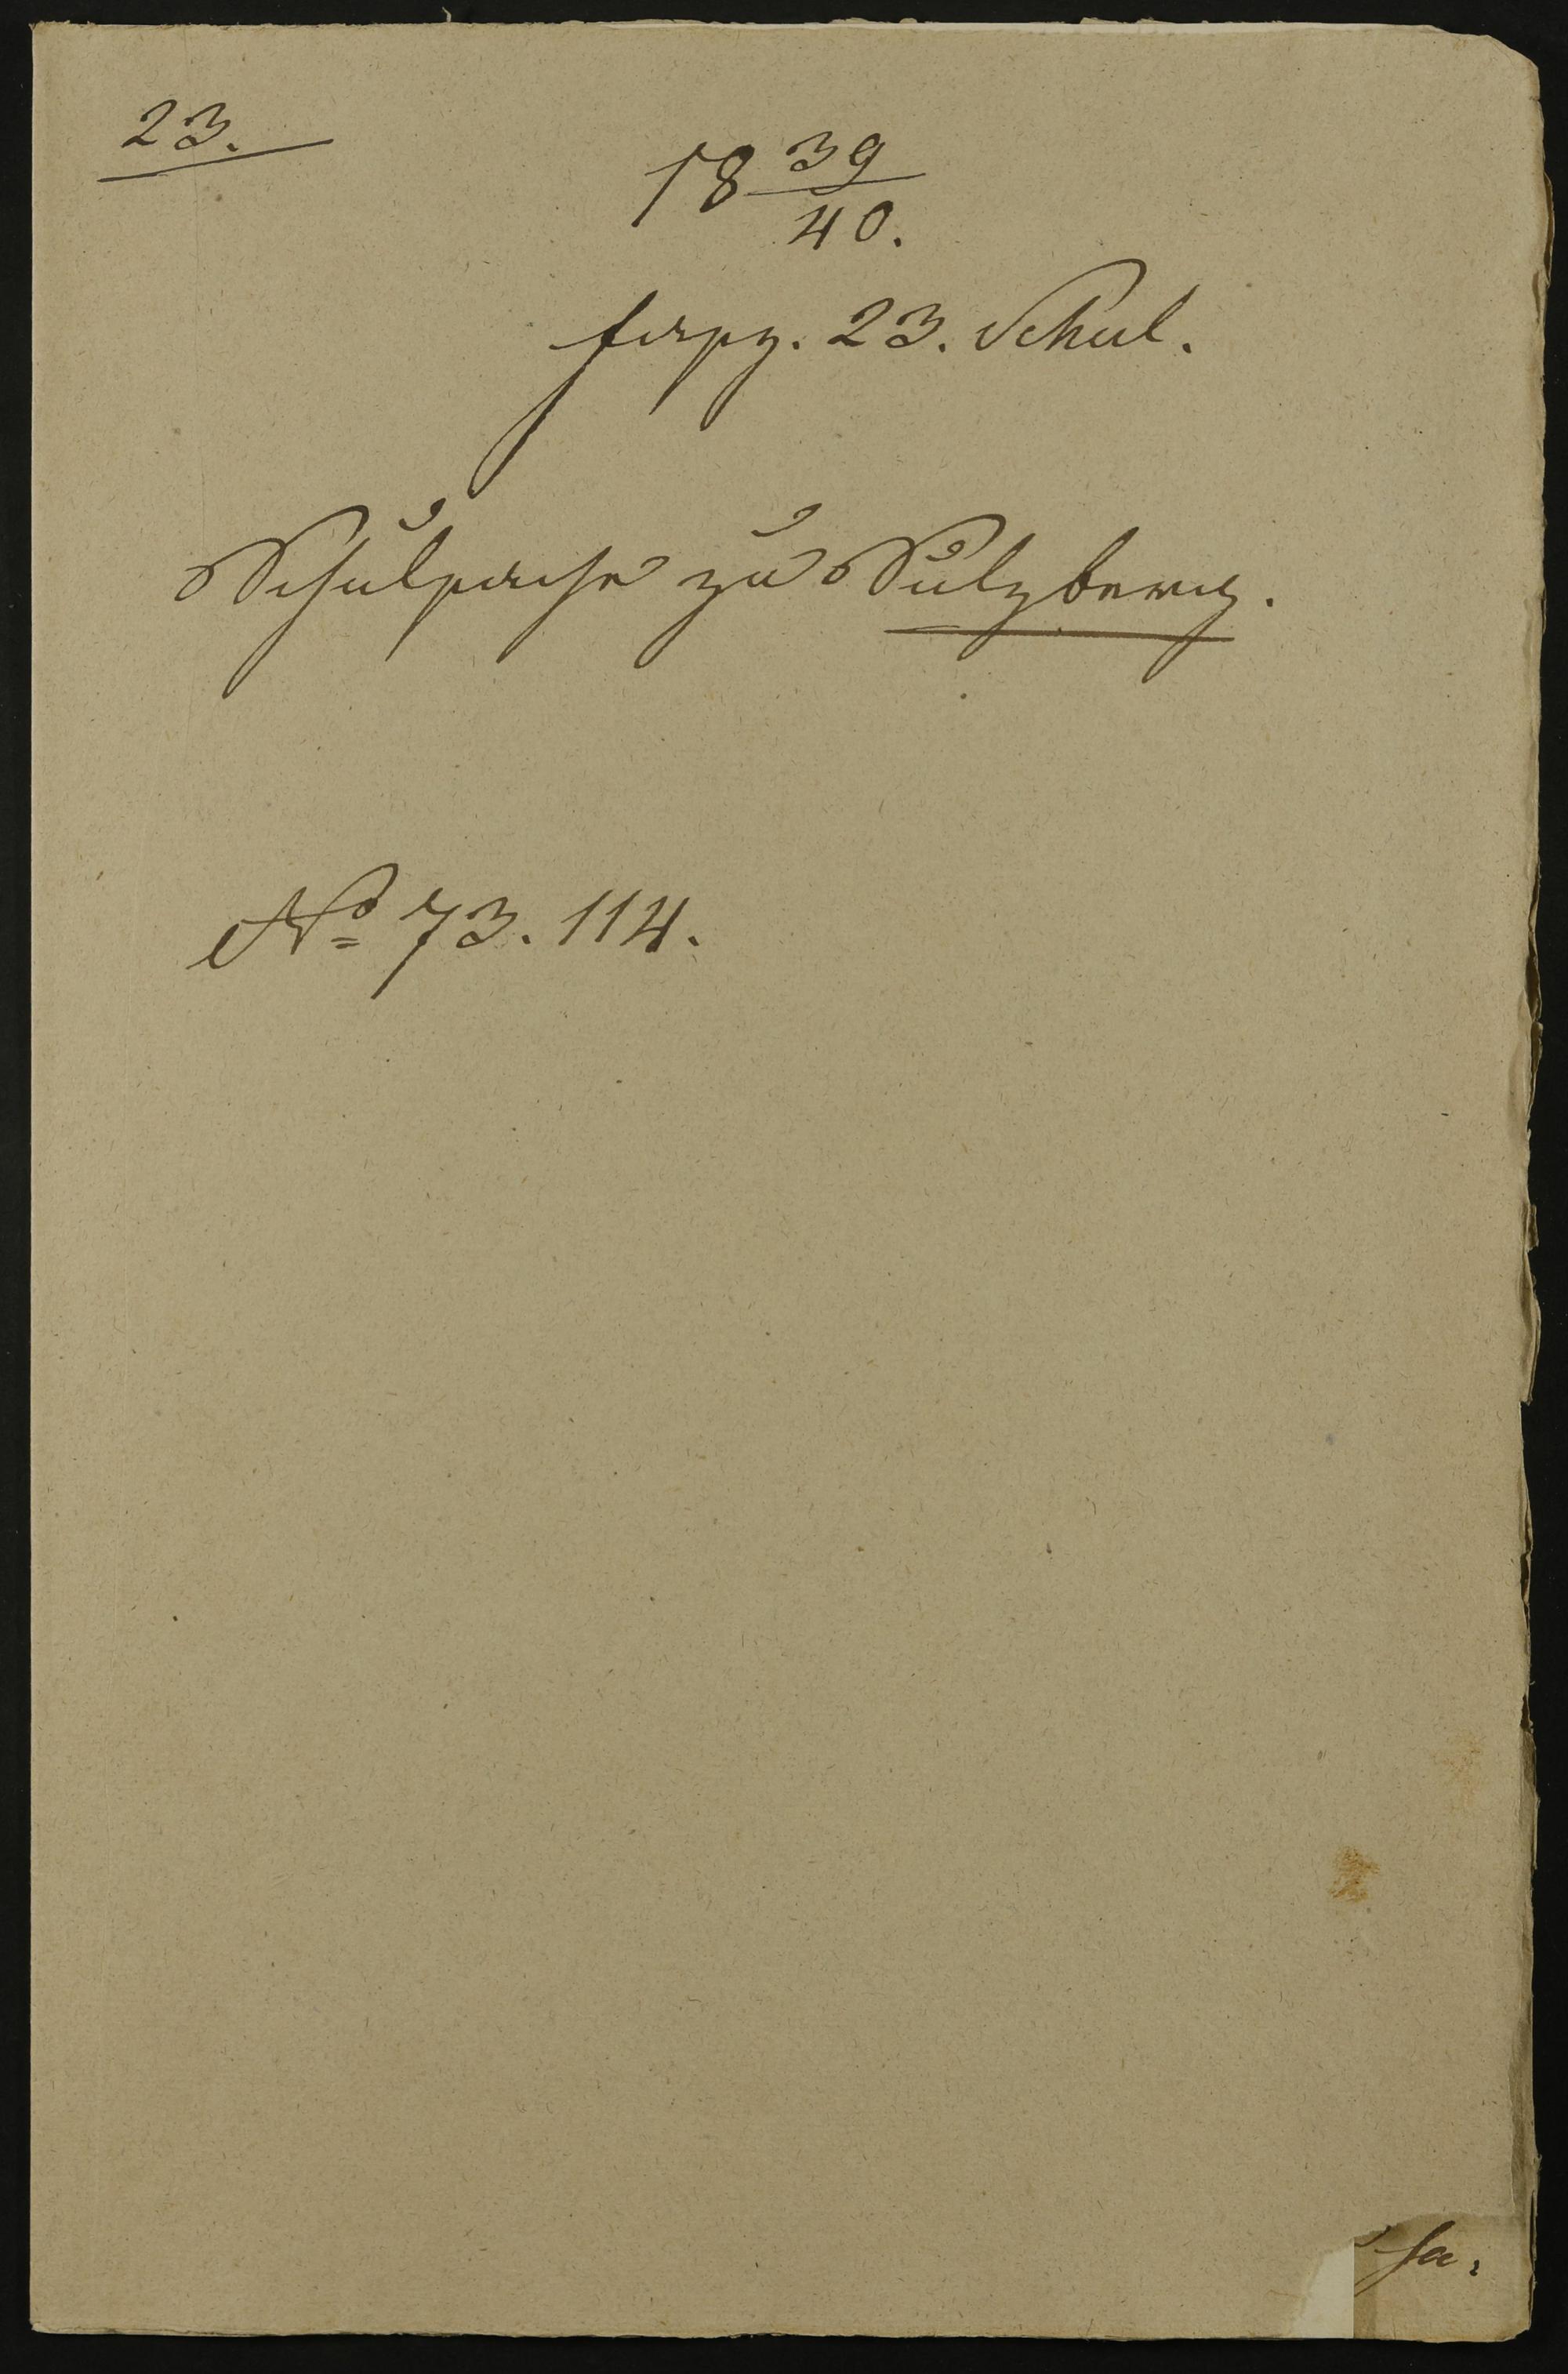 23.
18 39/40.
fasz. 23. Schul.
Schulsache zu Sulzberg.
No 73. 114.